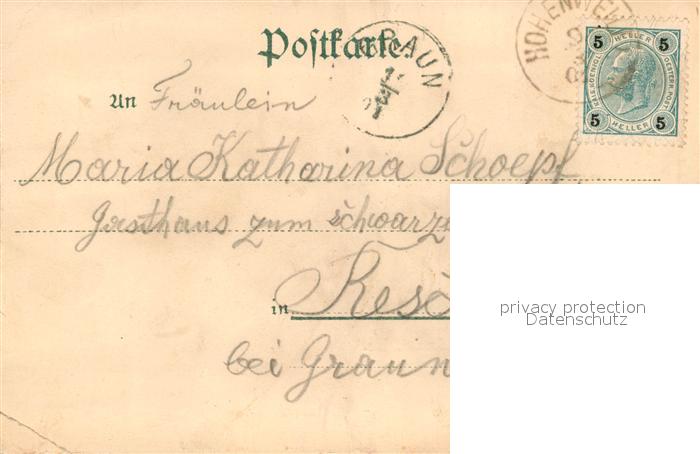 Postkarte.
GRAUN
HOHENWE
5 HELLER 5
KAIS. KOENIGL. OESTERR. POST
5 HELLER 5
An Fräulein
Maria Katharina Schoepf,
Gasthaus zum schwarze
in Resc
bei Graun
privacy protection
Datenschutz